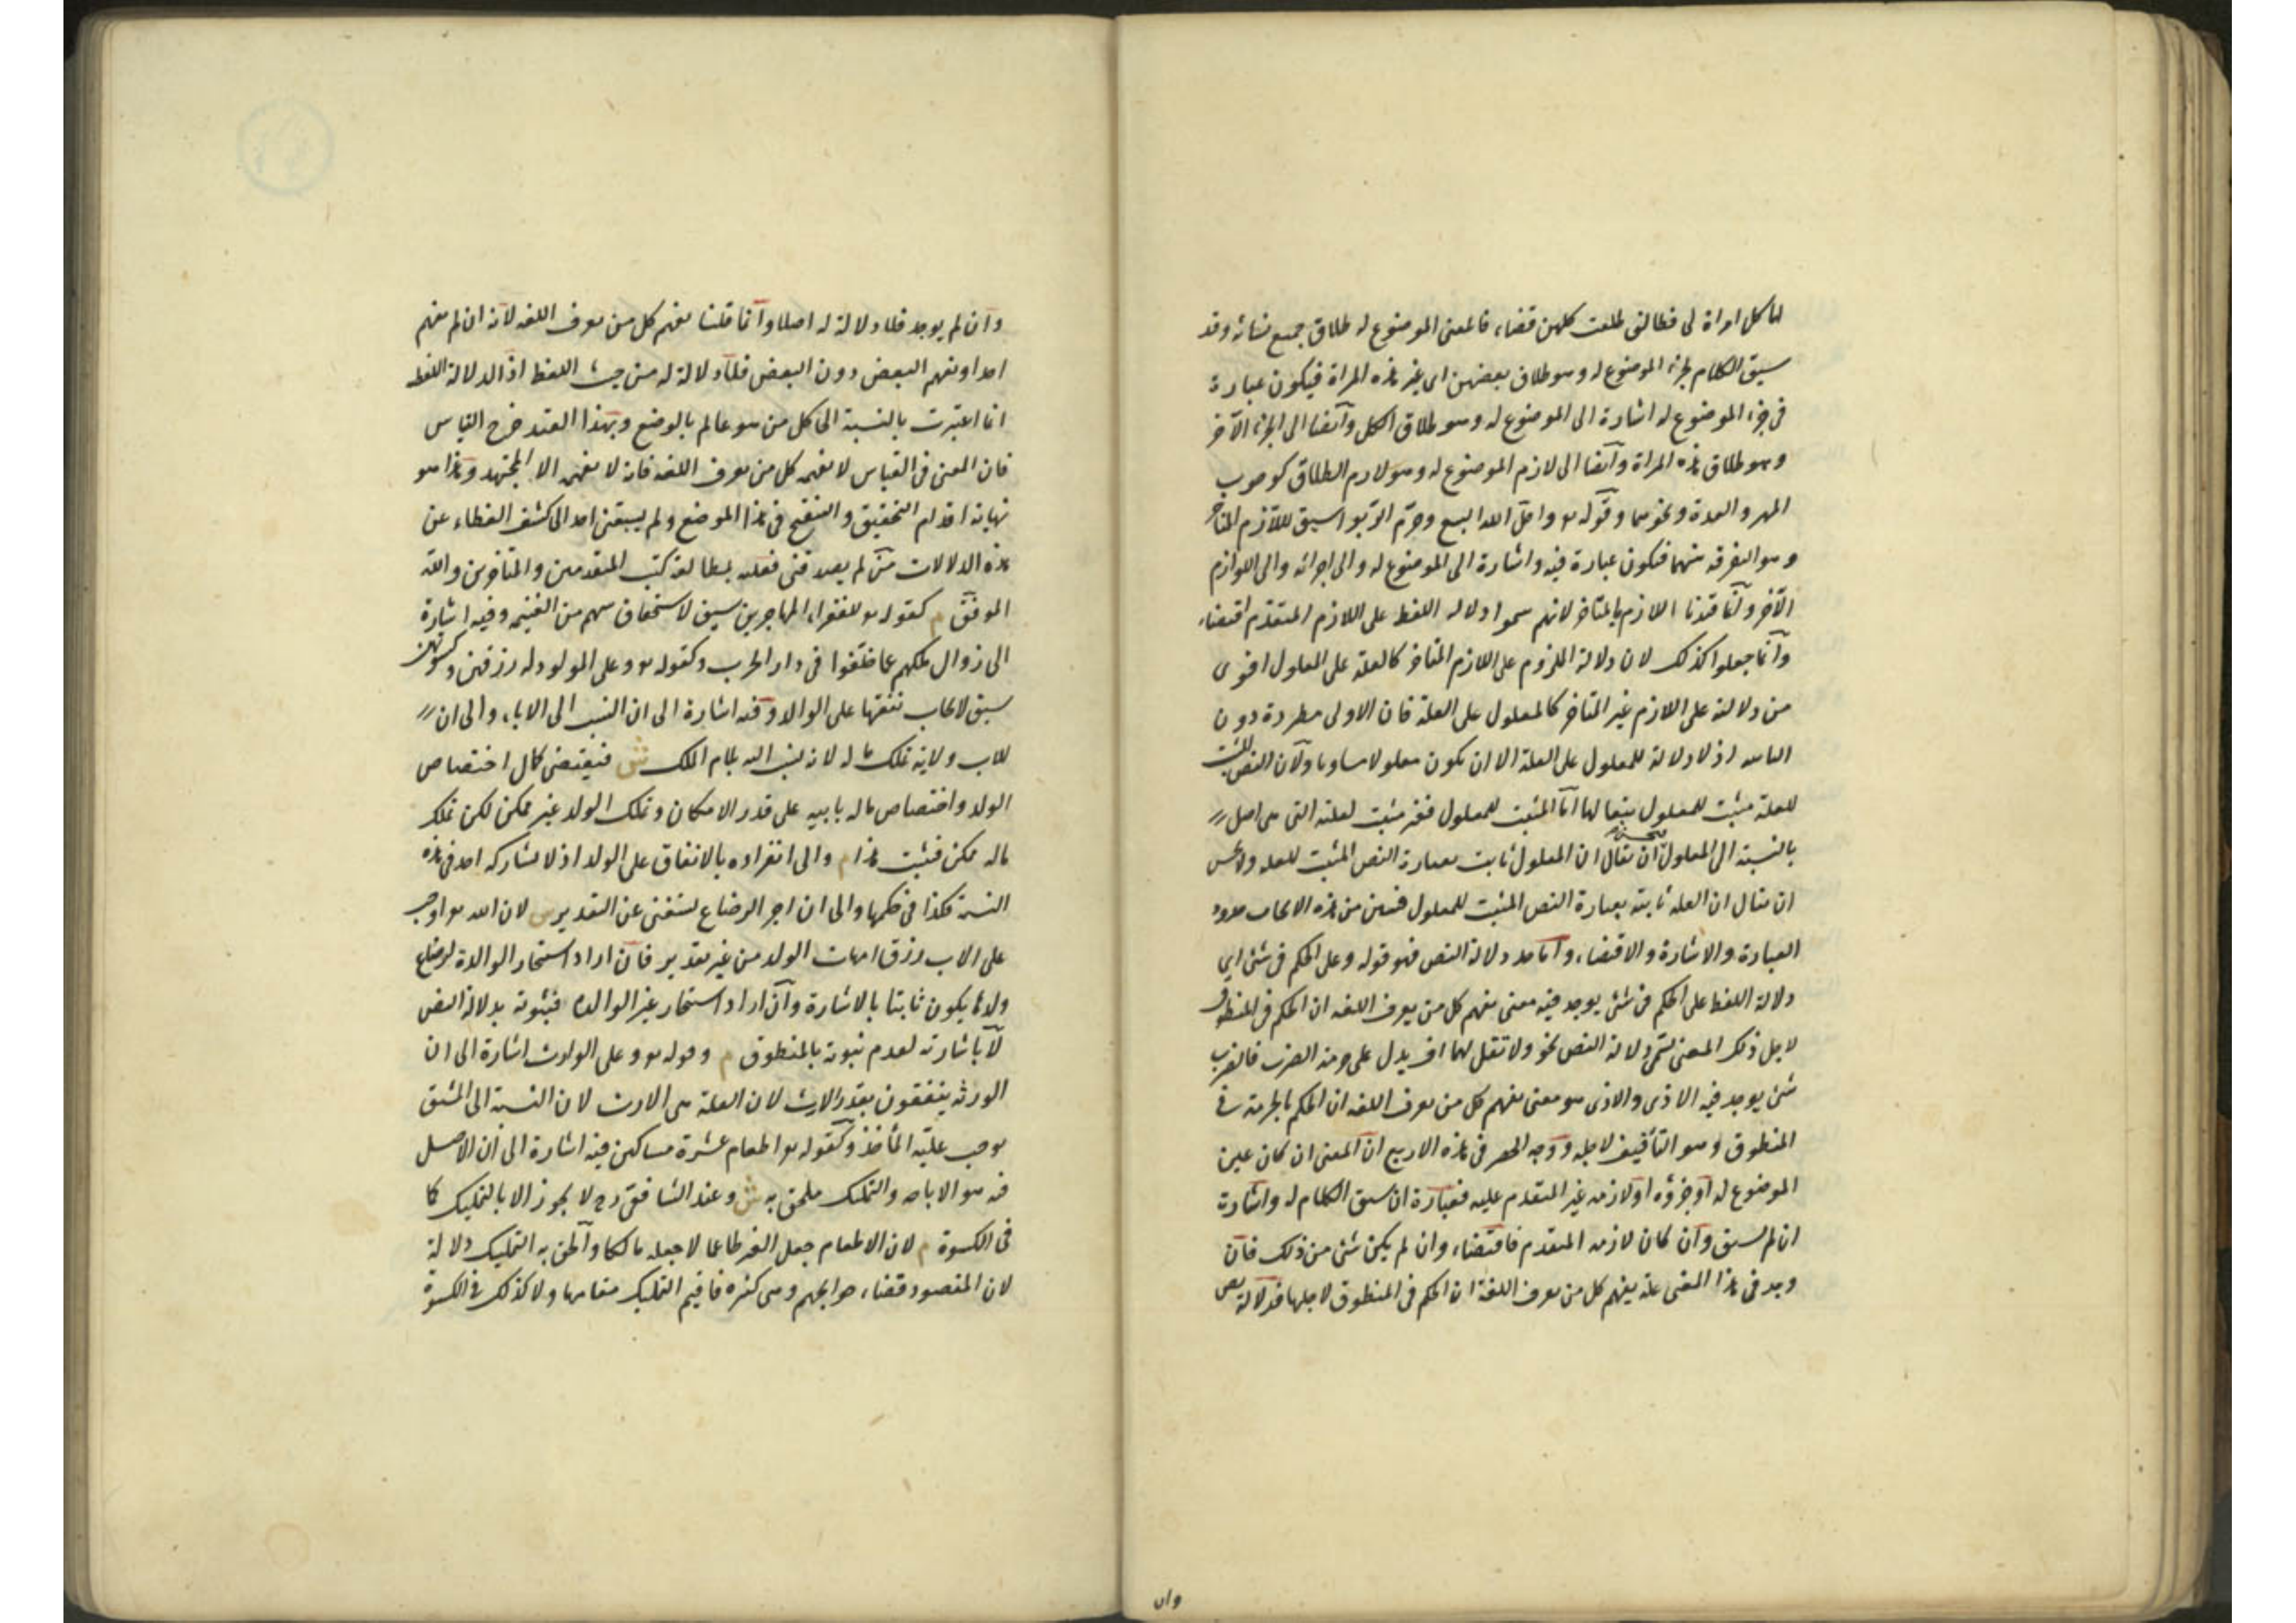 لها كل امراة لى فطالق طلقت كلهن قضاء فالمعنى الموضوع له طلاق جميع نسائه وقد
سيق الكلام لجزء الموضوع له وهو طلاق بعضهن اى غير هذه المراة فيكون عبارة
فى جزء الموضوع له اشارة الى الموضوع له وهو طلاق الكل وايضا الى الجزء الآخر
وهو طلاق هذه المراة وايضا الى لازم الموضوع له وهو لازم الطلاق كوجوب
المهر والعدة ونحوهما وقوله تع واحل الله البيع وحرم الربوا سيق لللازم المتأخر
وهو التفرقة بينهما فيكون عبارة فيه واشارة الى الموضوع له والى اجزائه والى اللوازم
الآخر وانما قيدنا اللازم بالمتاخر لانهم سموا دلالة اللفظ على اللازم المتقدم اقتضاء
وانما جعلوا كذلك لان دلالة الملزوم على اللازم المتاخر كالعلة على المعلول اقوى
من دلالته على اللازم غير المتاخر كالمعلول على العلة فان الاولى مطردة دون
الثانية اذ لا دلالة للمعلول على العلة الا ان يكون معلولا مساويا ولان النص المثبت
للعلة مثبت للمعلول تبعا لها اما المثبت للمعلول فغير مثبت لعلته التى هى اصل
بالنسبة الى المعلول فيحسن ان يقال ان المعلول ثابت بعبارة النص المثبت للعلة ولا يحسن
ان يقال ان العلة ثابتة بعبارة النص المثبت للمعلول فتبين من هذه الابحاث حدود
العبارة والاشارة والاقتضاء واما حد دلالة النص فهو قوله وعلى الحكم فى شئ اى
دلالة اللفظ على الحكم فى شئ يوجد فيه معنى يفهم كل من يعرف اللغة ان الحكم فى المنطوق
لاجل ذلك المعنى تسمى دلالة النص نحو ولا تقل لهما اف يدل على حرمة الضرب فالضرب
شئ يوجد فيه الاذى والاذى هو معنى يفهم كل من يعرف اللغة ان الحكم بالحرمة فى
المنطوق وهو التأفيف لاجله ووجه الحصر فى هذه الاربع ان المعنى ان كان عين
الموضوع له او جزؤه او لازمه غير المتقدم عليه فعبارة ان سيق الكلام له واشارة
ان لم يسق وان كان لازمه المتقدم فاقتضاء وان لم يكن شئ من ذلك فان
وجد فى هذا المعنى علة يفهم كل من يعرف اللغة ان الحكم فى المنطوق لاجلها فدلالة نص
وان
وان لم يوجد فلا دلالة له اصلا وانما قلنا يفهم كل من يعرف اللغة لانه ان لم يفهم
احد او يفهم البعض دون البعض فلا دلالة له من حيث اللفظ اذ الدلالة اللفظ
انما اعتبرت بالنسبة الى كل من هو عالم بالوضع وبهذا القيد خرج القياس
فان المعنى فى القياس لا يفهمه كل من يعرف اللغة فانه لا يفهمه الا المجتهد وهذا هو
نهاية اقدام التحقيق والتنقيح فى هذا الموضع ولم يسبقنى احد الى كشف الغطاء عن
هذه الدلالات من لم يصدقنى فعليه بمطالعة كتب المتقدمين والمتاخرين والله
الموفق م كقوله تع للفقراء المهاجرين سيق لاستحقاق سهم من الغنيمة وفيه اشارة
الى زوال ملكهم عما خلفوا فى دار الحرب وكقوله تع وعلى المولود له رزقهن وكسوتهن
سيق لايجاب نفقتها على الوالد وفيه اشارة الى ان النسب الى الاباء والى ان
للاب ولاية تملك ماله لانه نسب اليه بلام الملك ش فيقتضى كمال اختصاص
الولد واختصاص ماله بابيه على قدر الامكان وتملك الولد غير ممكن لكن تملك
ماله ممكن فيثبت هذا م والى انفراده بالانفاق على الولد اذ لا يشاركه احد فى هذه
النسبة فكذا فى حكمها والى ان اجر الرضاع يستغنى عن التقدير ش لان الله تع اوجب
على الاب رزق امهات الولد من غير تقدير فان اراد استيجار الوالدة لرضاع
ولدها يكون ثابتا بالاشارة وان اراد استيجار غير الوالدة فثبوته بدلالة النص
لا باشارته لعدم ثبوته بالمنطوق م وقوله تع وعلى الوارث اشارة الى ان
الورثة ينفقون بقدر الارث لان العلة هى الارث لان النسبة الى المشتق
يوجب علية المأخذ وكقوله تع اطعام عشرة مساكين فيه اشارة الى ان الاصل
فيه هو الاباحة والتمليك ملحق به ش وعند الشافعى رح لا يجوز الا بالتمليك كما
فى الكسوة م لان الاطعام جعل الغير طاعما لا جعله مالكا والحق به التمليك دلالة
لان المقصود قضاء حوايجهم وهى كثيرة فاقيم التمليك مقامها ولا كذلك فى الكسوة